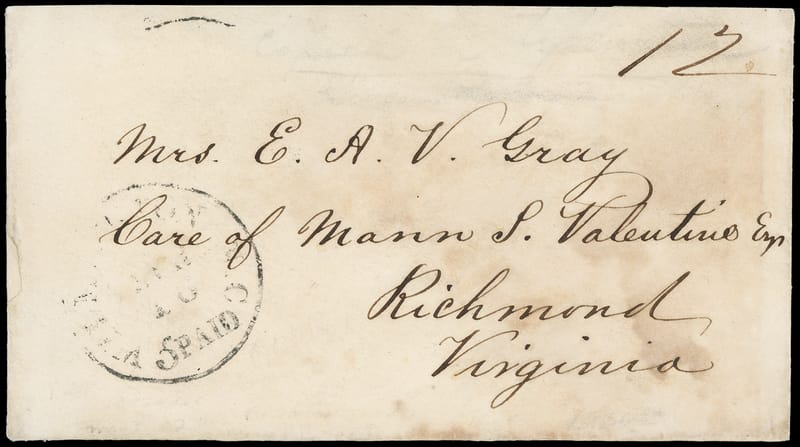 12
Mrs. E. A. V. Gray
Care of Mann S. Valentine Esqr
Richmond
Virginia
10
5 PAID